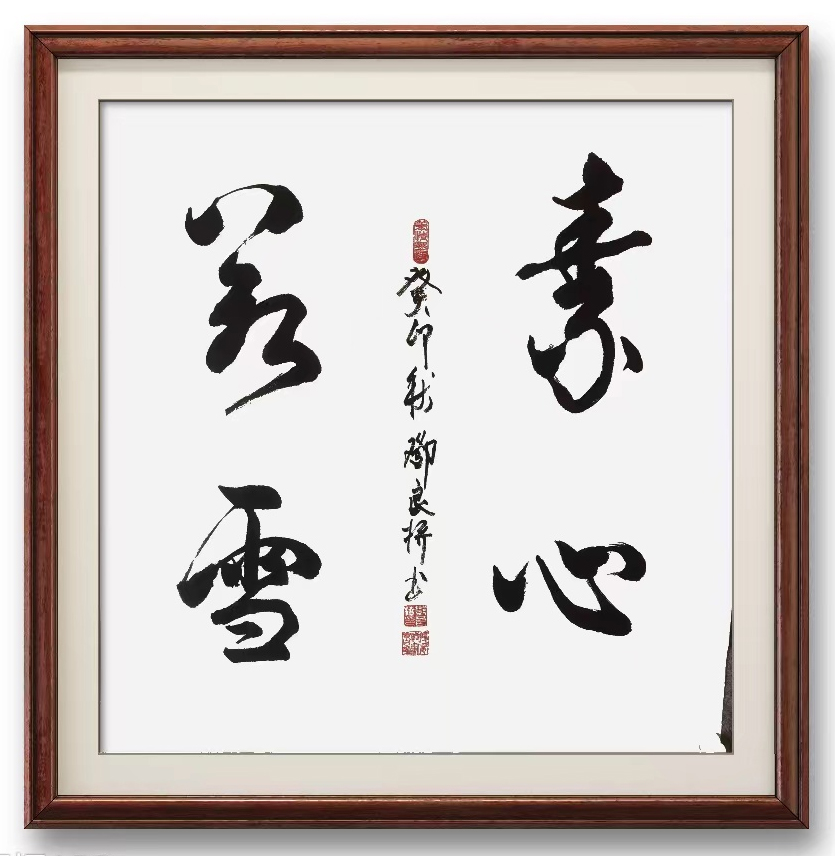 素心
若雪
癸卯秋鄧良书